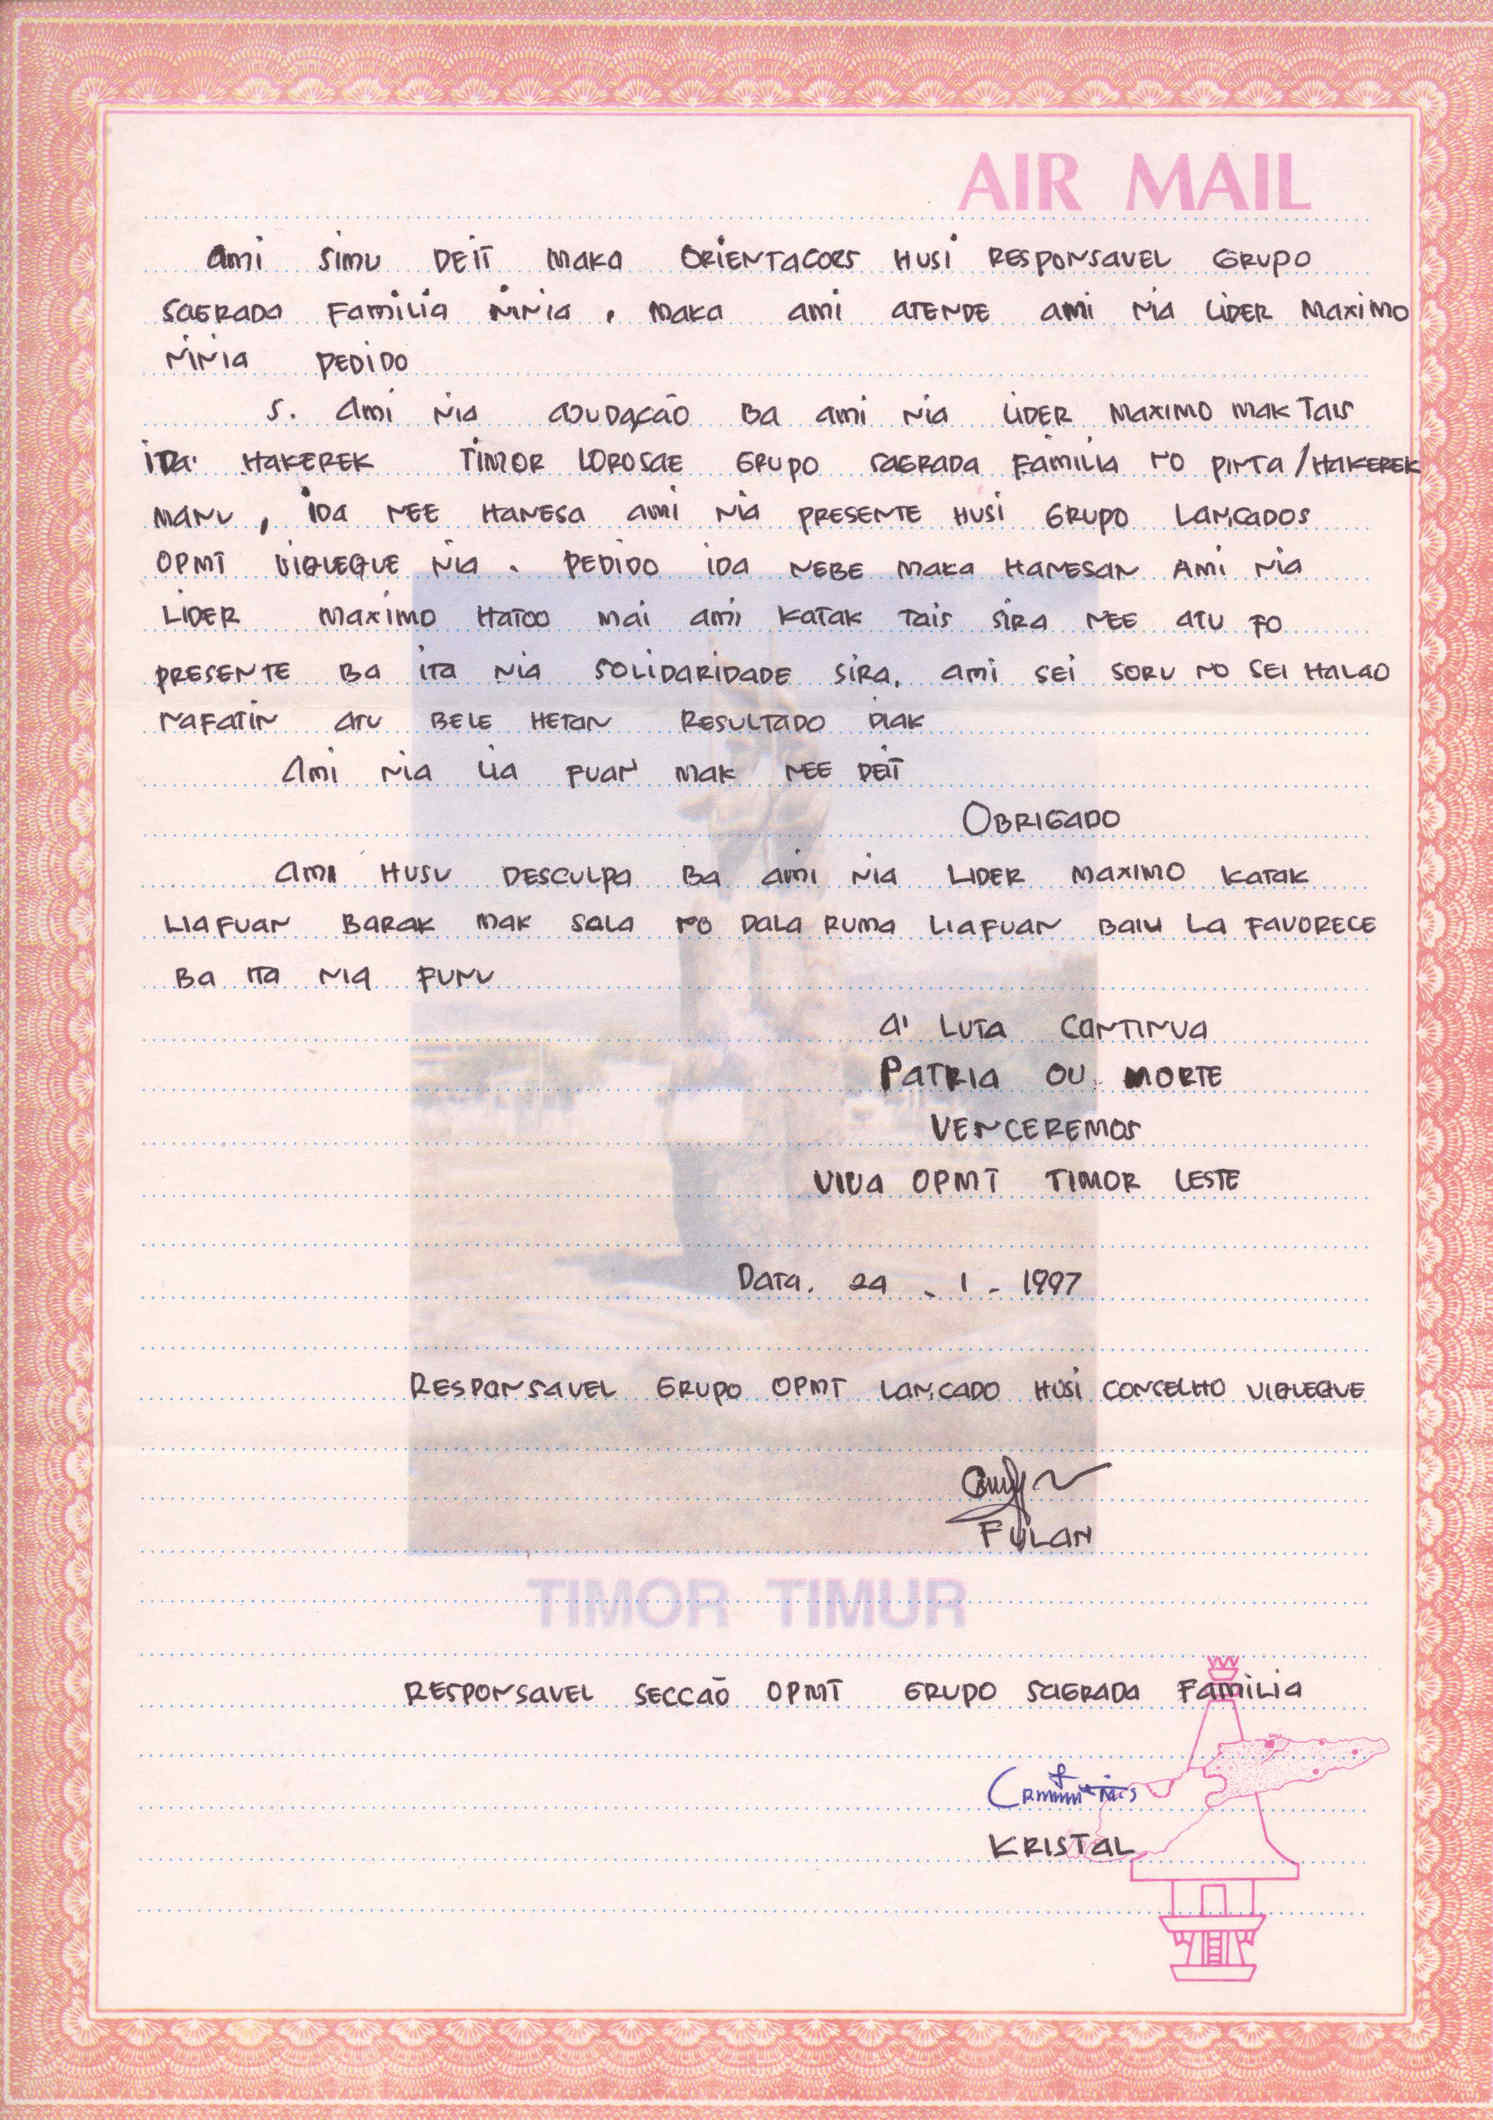 AIR MAIL
Ami simu deit maka orientacoes husi responsavel grupo
sagrada familia ninia, maka ami atende ami nia lider maximo
ninia pedido
5. Ami nia ajudação ba ami nia lider maximo mak tais
ida hakerek Timor Lorosae grupo sagrada familia no pinta/hakerek
manu, ida nee hanesa ami nia presente husi grupo lançados
OPMT Viqueque nia. Pedido ida nebe maka hanesan ami nia
lider maximo hatoo mai ami katak tais sira nee atu fo
presente ba ita nia solidaridade sira. Ami sei soru no sei halao
nafatin atu bele hetan resultado diak
Ami nia lia fuan mak nee deit
Obrigado
Ami husu desculpa ba ami nia lider maximo katak
liafuan barak mak sala no dala ruma liafuan la favorece
ba ita nia funu
A' luta continua
Patria ou morte
Venceremos
Viva OPMT Timor Leste
Data. 24 - 1 - 1997
Responsavel grupo OPMT lançado husi conselho Viqueque
Fulan
TIMOR TIMUR
Responsavel secção OPMT grupo sagrada familia
Kristal